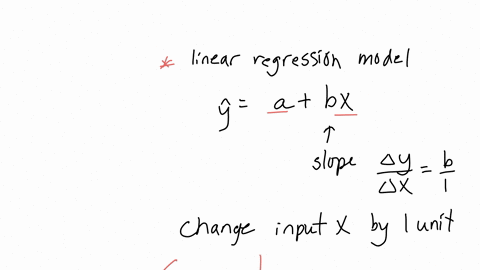 * linear regression model
ŷ = a + bx
↑
slope Δy/Δx = b/1
change input x by 1 unit